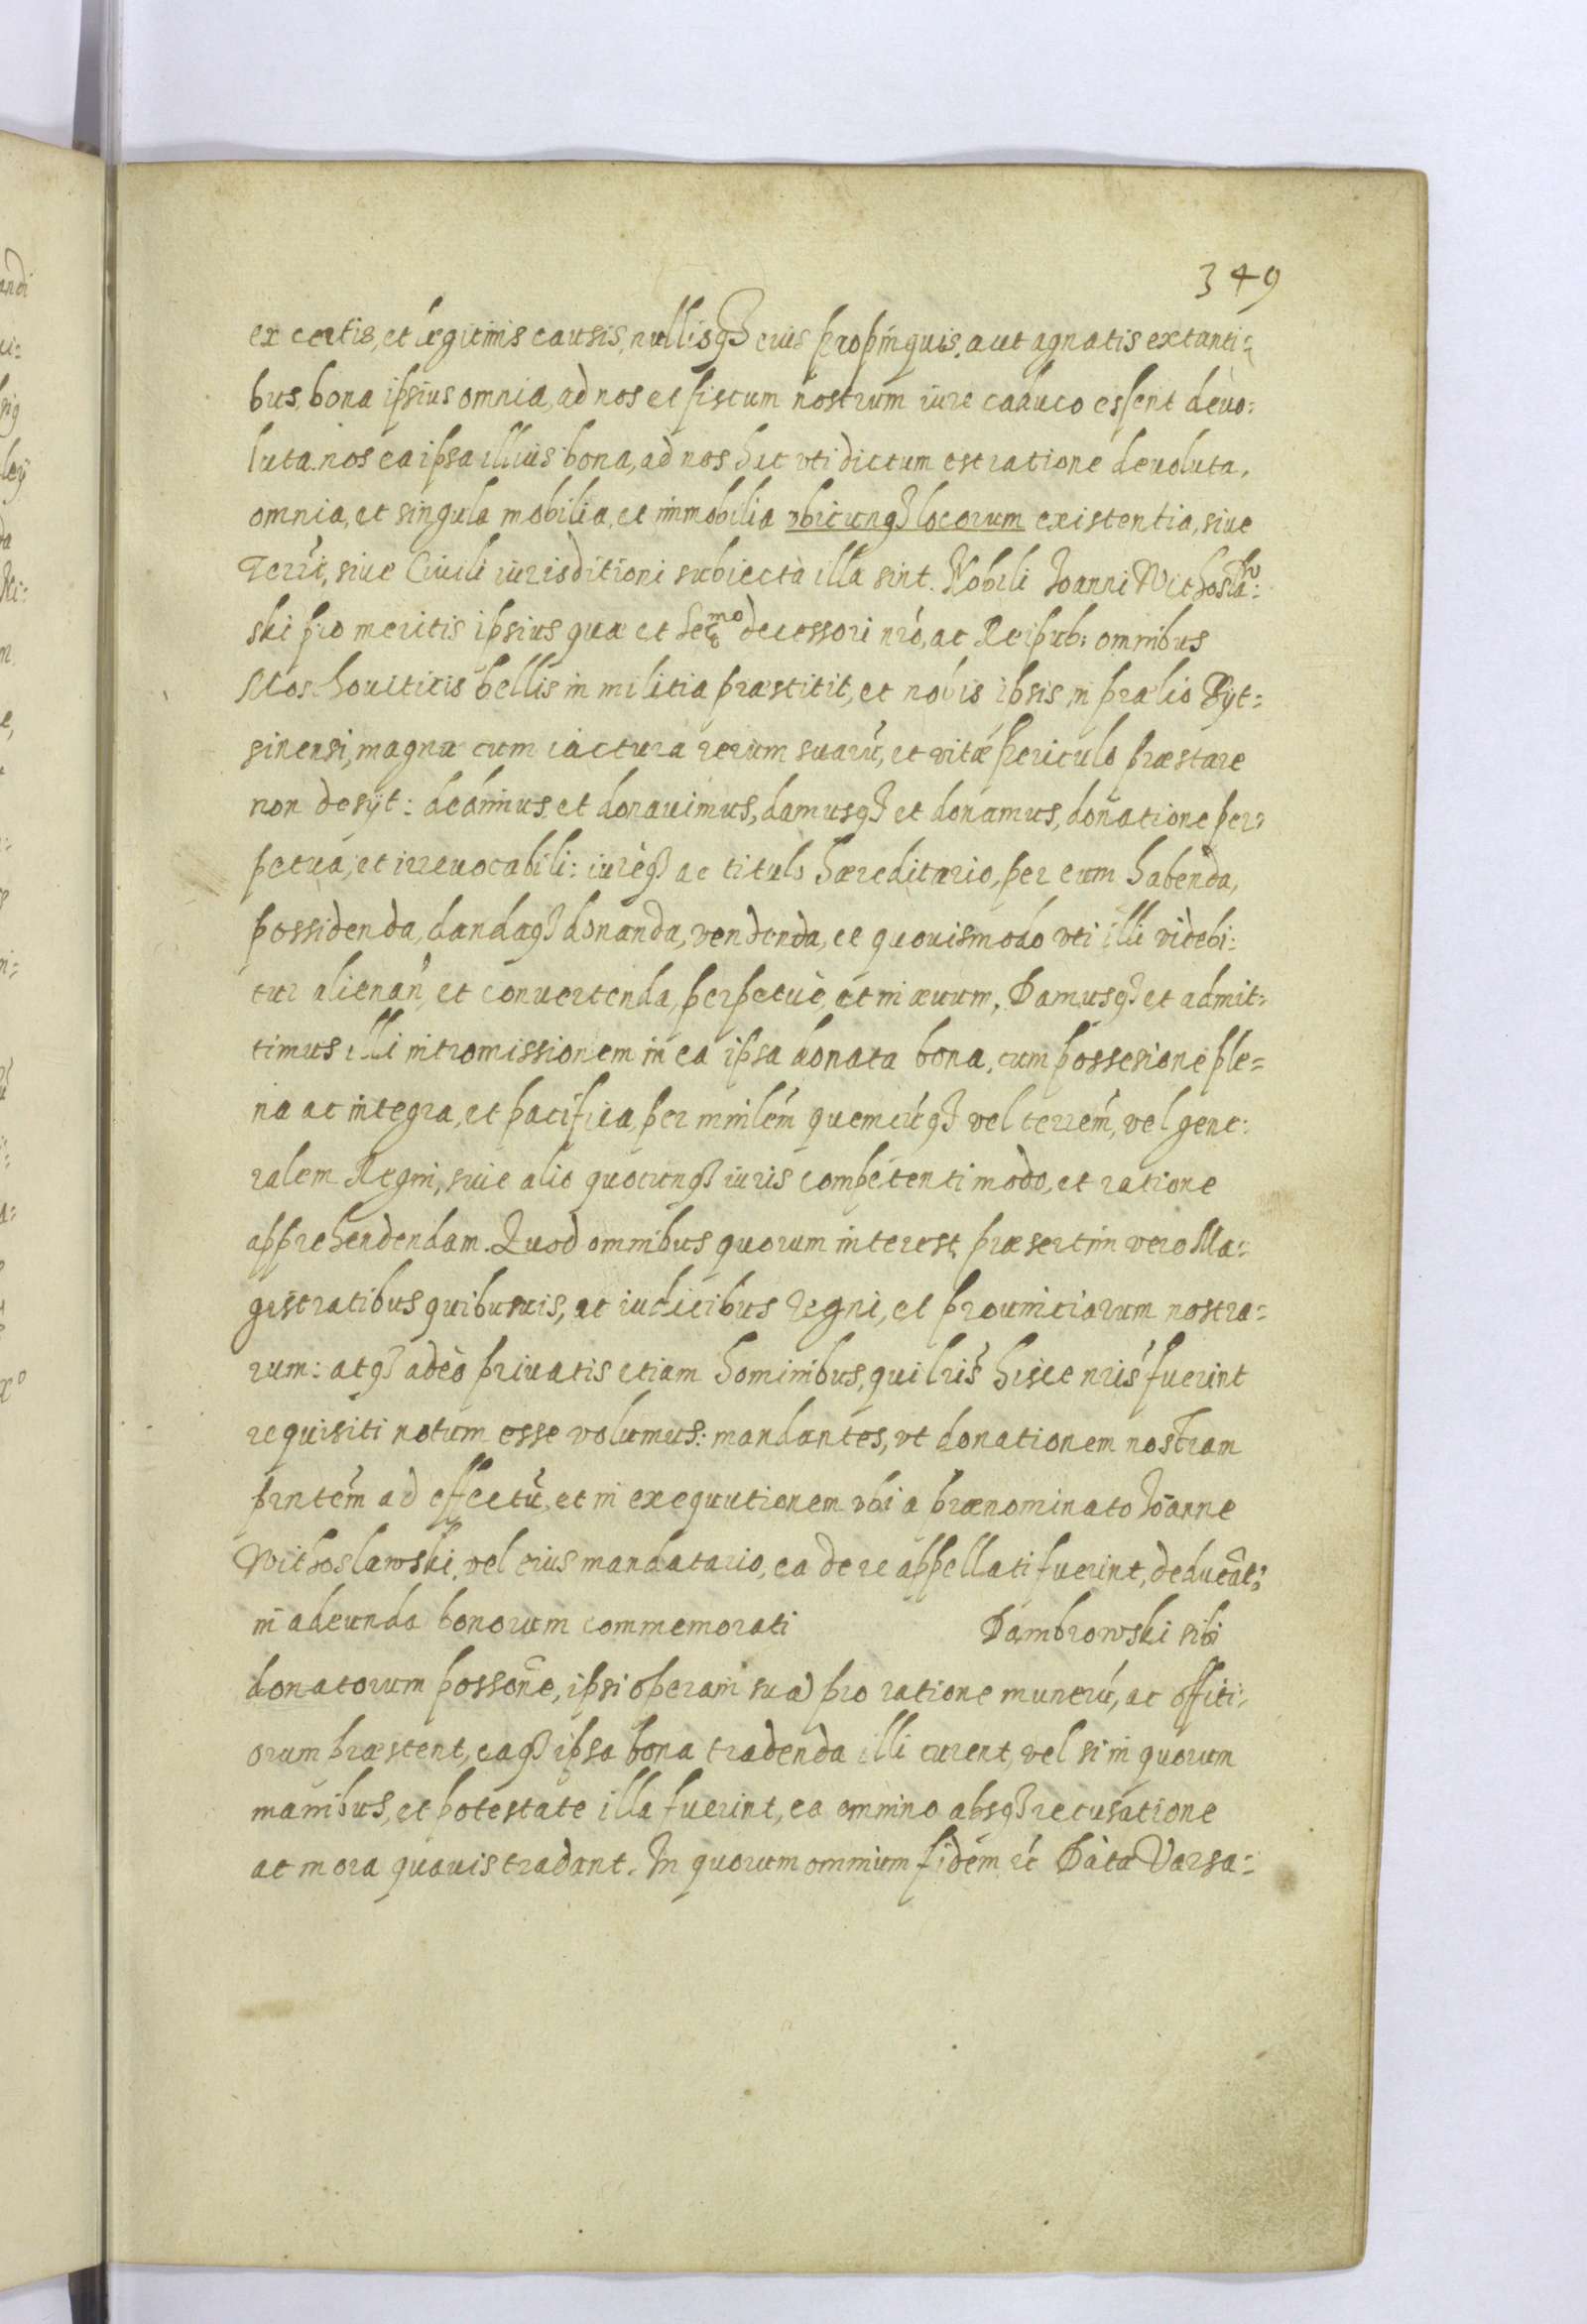 349
ex certis, et legitimis causis, nullisq3 eius propinquis, aut agnatis extanti=
bus, bona ipsius omnia, ad nos et fiscum nostrum iure caduco essent deuo=
luta. nos ea ipsa illius bona, ad nos hac vti dictum est ratione deuoluta,
omnia, et singula mobilia, et immobilia vbicunq3 locorum existentia, siue
Terri, siue Ciuili iurisditioni subiecta illa sint. Nobili Ioanni Withosla=
ski pro meritis ipsius quæ et Ser͠mo decessori nr̃o, ac Reipub: omnibus
Moschouiticis bellis in militia præstitit, et nobis ipsis in prælio Byt=
sinensi, magna cum iactura rerum suarũ, et vitæ periculo præstare
non desijt: dedimus et donauimus, damusq3 et donamus, donatione per=
petua, et irreuocabili: iureq3 ac titulo hæreditario, per eum habenda,
possidenda, dandaq3 donanda, vendenda, et quouismodo vti illi videbi=
tur alienan̄, et conuertenda, perpetuè, et in æuum. Damusq3 et admit=
timus illi intromissionem in ea ipsa donata bona, cum possesione ple=
na ac integra, et pacifica, per minlem̃ quemcũq3 vel terrem̃, vel gene=
ralem Regni, siue alio quocunq3 iuris competenti modo, et ratione
apprehendendam. Quod omnibus quorum interest, præsertim vero Ma=
gistratibus quibusuis, ac iudicibus Regni, et prouinciarum nostra=
rum: atq3 adeò priuatis etiam hominibus, qui lris̃ hisce nris̃ fuerint
requisiti notum esse volumus: mandantes, vt donationem nostram
prntem̃ ad effectũ, et in exequutionem vbi a prænominato Ioanne
Withoslawski, vel eius mandatario, ea de re appellati fuerint, deducãt:
in adeunda bonorum commemorati Dambrowski sibi
donatorum posson̄e, ipsi operam suã pro ratione munerũ, ac offiti=
orum præstent, eaq3 ipsa bona tradenda illi curent, vel si in quorum
manibus, et potestate illa fuerint, ea omnino absq3 recusatione
ac mora quauis tradant. In quorum omnium fidem etc̃ Data Varsa=